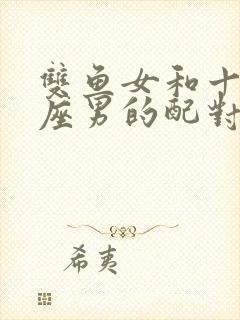 雙魚女和十
座男的配對
希夷